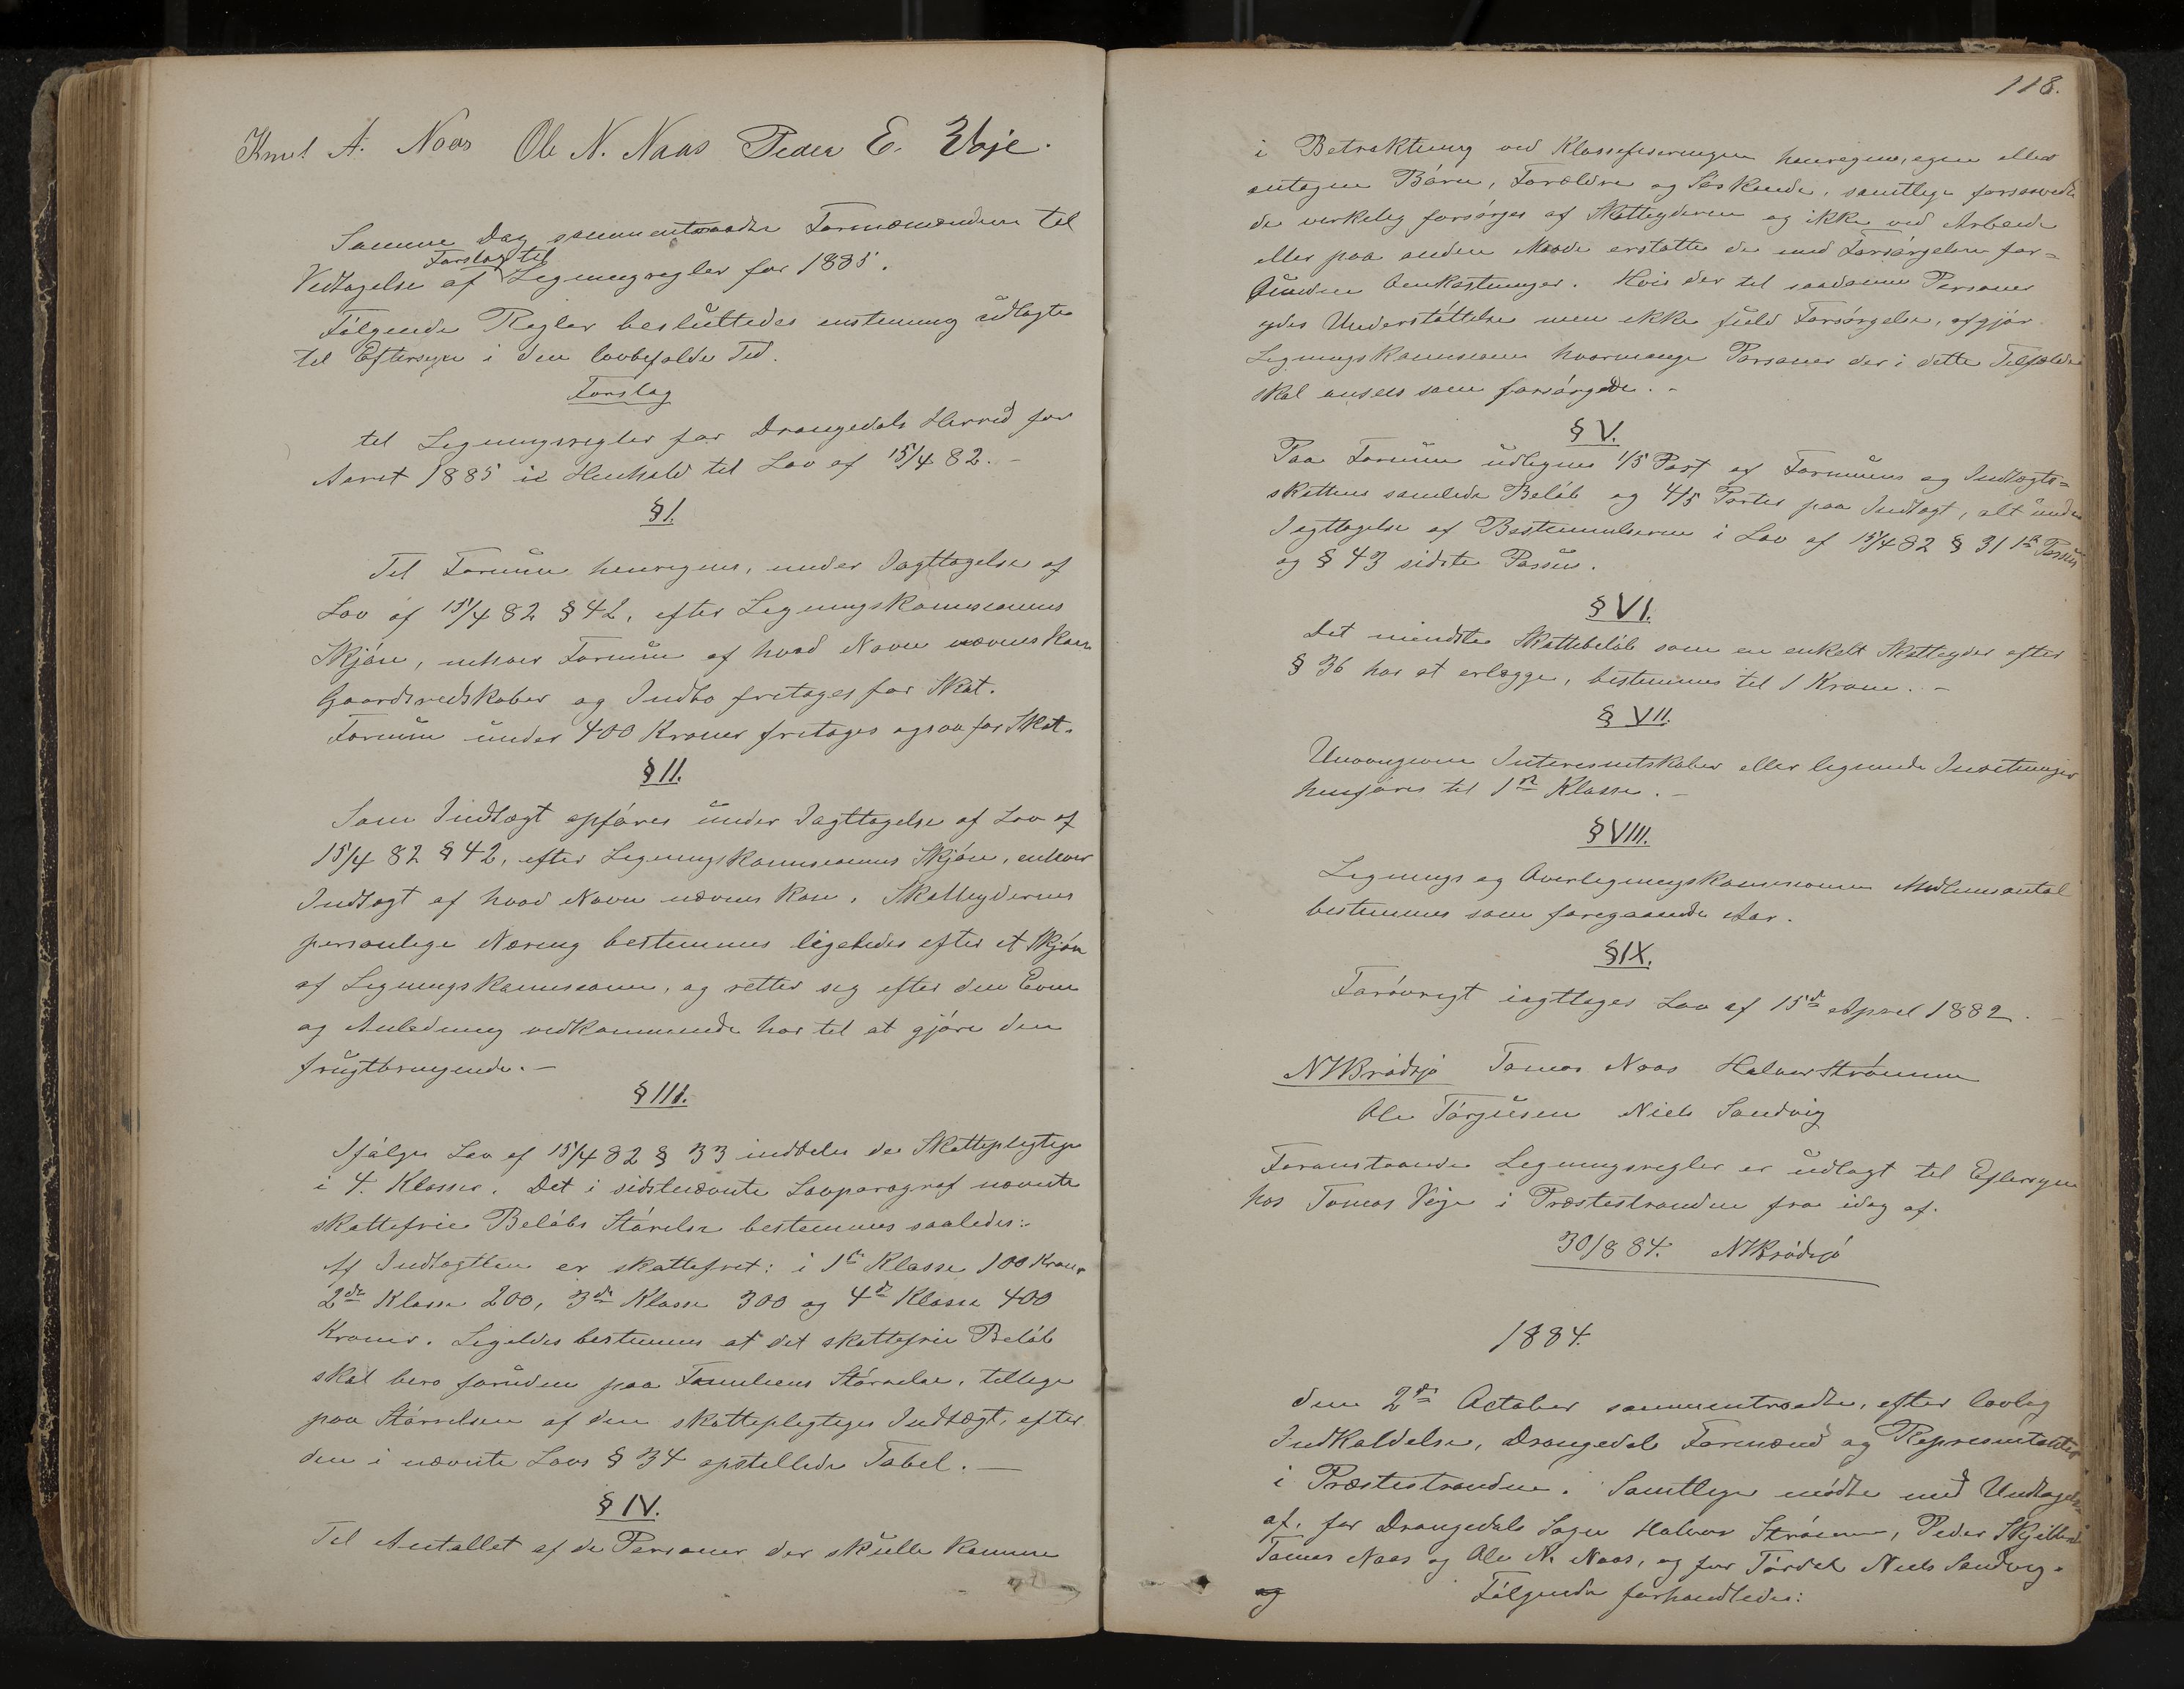 Knut A. Naas Ole N. Naas Peder E. Voje.
Samme Dag sammentraadte Formændene til
Forslag til
Vedtagelse af Ligningregler for 1885.
Følgende Regler besluttedes enstemmig udlagte
til Eftersyn i den lovbefalde Tid.
Forslag
til Ligningsregler for Drangedals Herred for
Aaret 1885 i Henhold til Lov af 15/4 82. -
§ I.
Til Formue henregnes, under Iagttagelse af
Lov af 15/4 82 § 42, efter Ligningskomissionens
Skjøn, enhver Formue af hvad Navn nævnes kan
Gaardsredskaber og Indbo fritages for Skat.
Formue under 400 Kroner fritages ogsaa for Skat.
§ II.
Som Indtægt opføres under Iagttagelse af Lov af
15/4 82 § 42, efter Ligningskommissionens Skjøn, enhver
Indtægt af hvad Navn nævnes kan. Skatteydernes
personlige Næring bestemmes ligeledes efter et Skjøn
af Ligningskommissionen, og retter sig efter den Evne
og Anledning vedkommende har til at gjøre den
frugtbringende. -
§ III.
Ifølge Lov af 15/4 82 § 33 inddeles de Skattepligtige
i 4. Klasser. Det i sidstnævnte Lovparagraf nævnte
skattefrie Beløbs Størelse bestemmes saaledes:
Af Indtægten er skattefrit: i 1ste Klasse 100 Kroner
2den Klasse 200, 3die Klasse 300 og 4de Klasse 400
Kroner. Ligeledes bestemmes at det skattefrie Beløb
skal bero foruden paa Familiens Størrelse, tillige
paa Størrelsen af den skattepligtiges Indtægt, efter
den i nævnte Lovs § 34 opstillede Tabel. -
§ IV.
Til Antallet af de Personer der skulle komme
118.
i Betraktning ved Klassefiseringen henregnes, egne eller
antagne Børn, Forældre og Søskende, samtlige forsaavidt
de verkelig forsørges af Skatteyderen og ikke ved Arbeide
eller paa anden Maade erstatte de med Forsørgelsen for=
bundne Omkostninger. Hvis der til saadanne Personer
ydes Understøttelse men ikke fuld Forsørgelse, afgjør
Ligningskommissionen hvormange Personer der i dette Tilfælde
skal ansees som forsørgede. -
§ V.
Paa Formue udlignes 1/5 Part af Formues og Indtægts=
skattens samlede Beløb og 4/5 Parter paa Indtægt, alt under
Iagttagelse af Bestemmelserne i Lov af 15/4 82 § 31 1ste Passus
og § 43 sidste Passus.
§ VI.
Det mindste Skattebeløb som en enkelt Skatteyder efter
§ 36 har at erlægge, bestemmes til 1 Krone. -
§ VII.
Uavangivne Interesentskaber eller lignende Indretninger
henføres til 1ste Klasse. -
§ VIII.
Lignings og Overligningskomissionens Medlemsantal
bestemmes som foregaaende Aar.
§ IX.
Forøvrigt iagttages Lov af 15de April 1882.
NKBrødsjø Tomas Naas Halvor Strømme
Ole Tørjusen Niels Sandvig
Foranstaaende Ligningsregler er udlagt til Eftersyn
hos Tomas Voje i Præstestranden fra idag af.
30/8 84. NKBrødsjø
1884.
den 2den October sammentraadte, efter lovlig
Indkaldelse, Drangedals Formænd og Representanter
i Præstestranden. Samtlige mødte med Undtagelse
af, for Drangedals Sogn Halvor Strømme, Peder
Tomas Naas og Ole N. Naas, og for Tørdal Niels Sandvig.
og Følgende forhandledes: